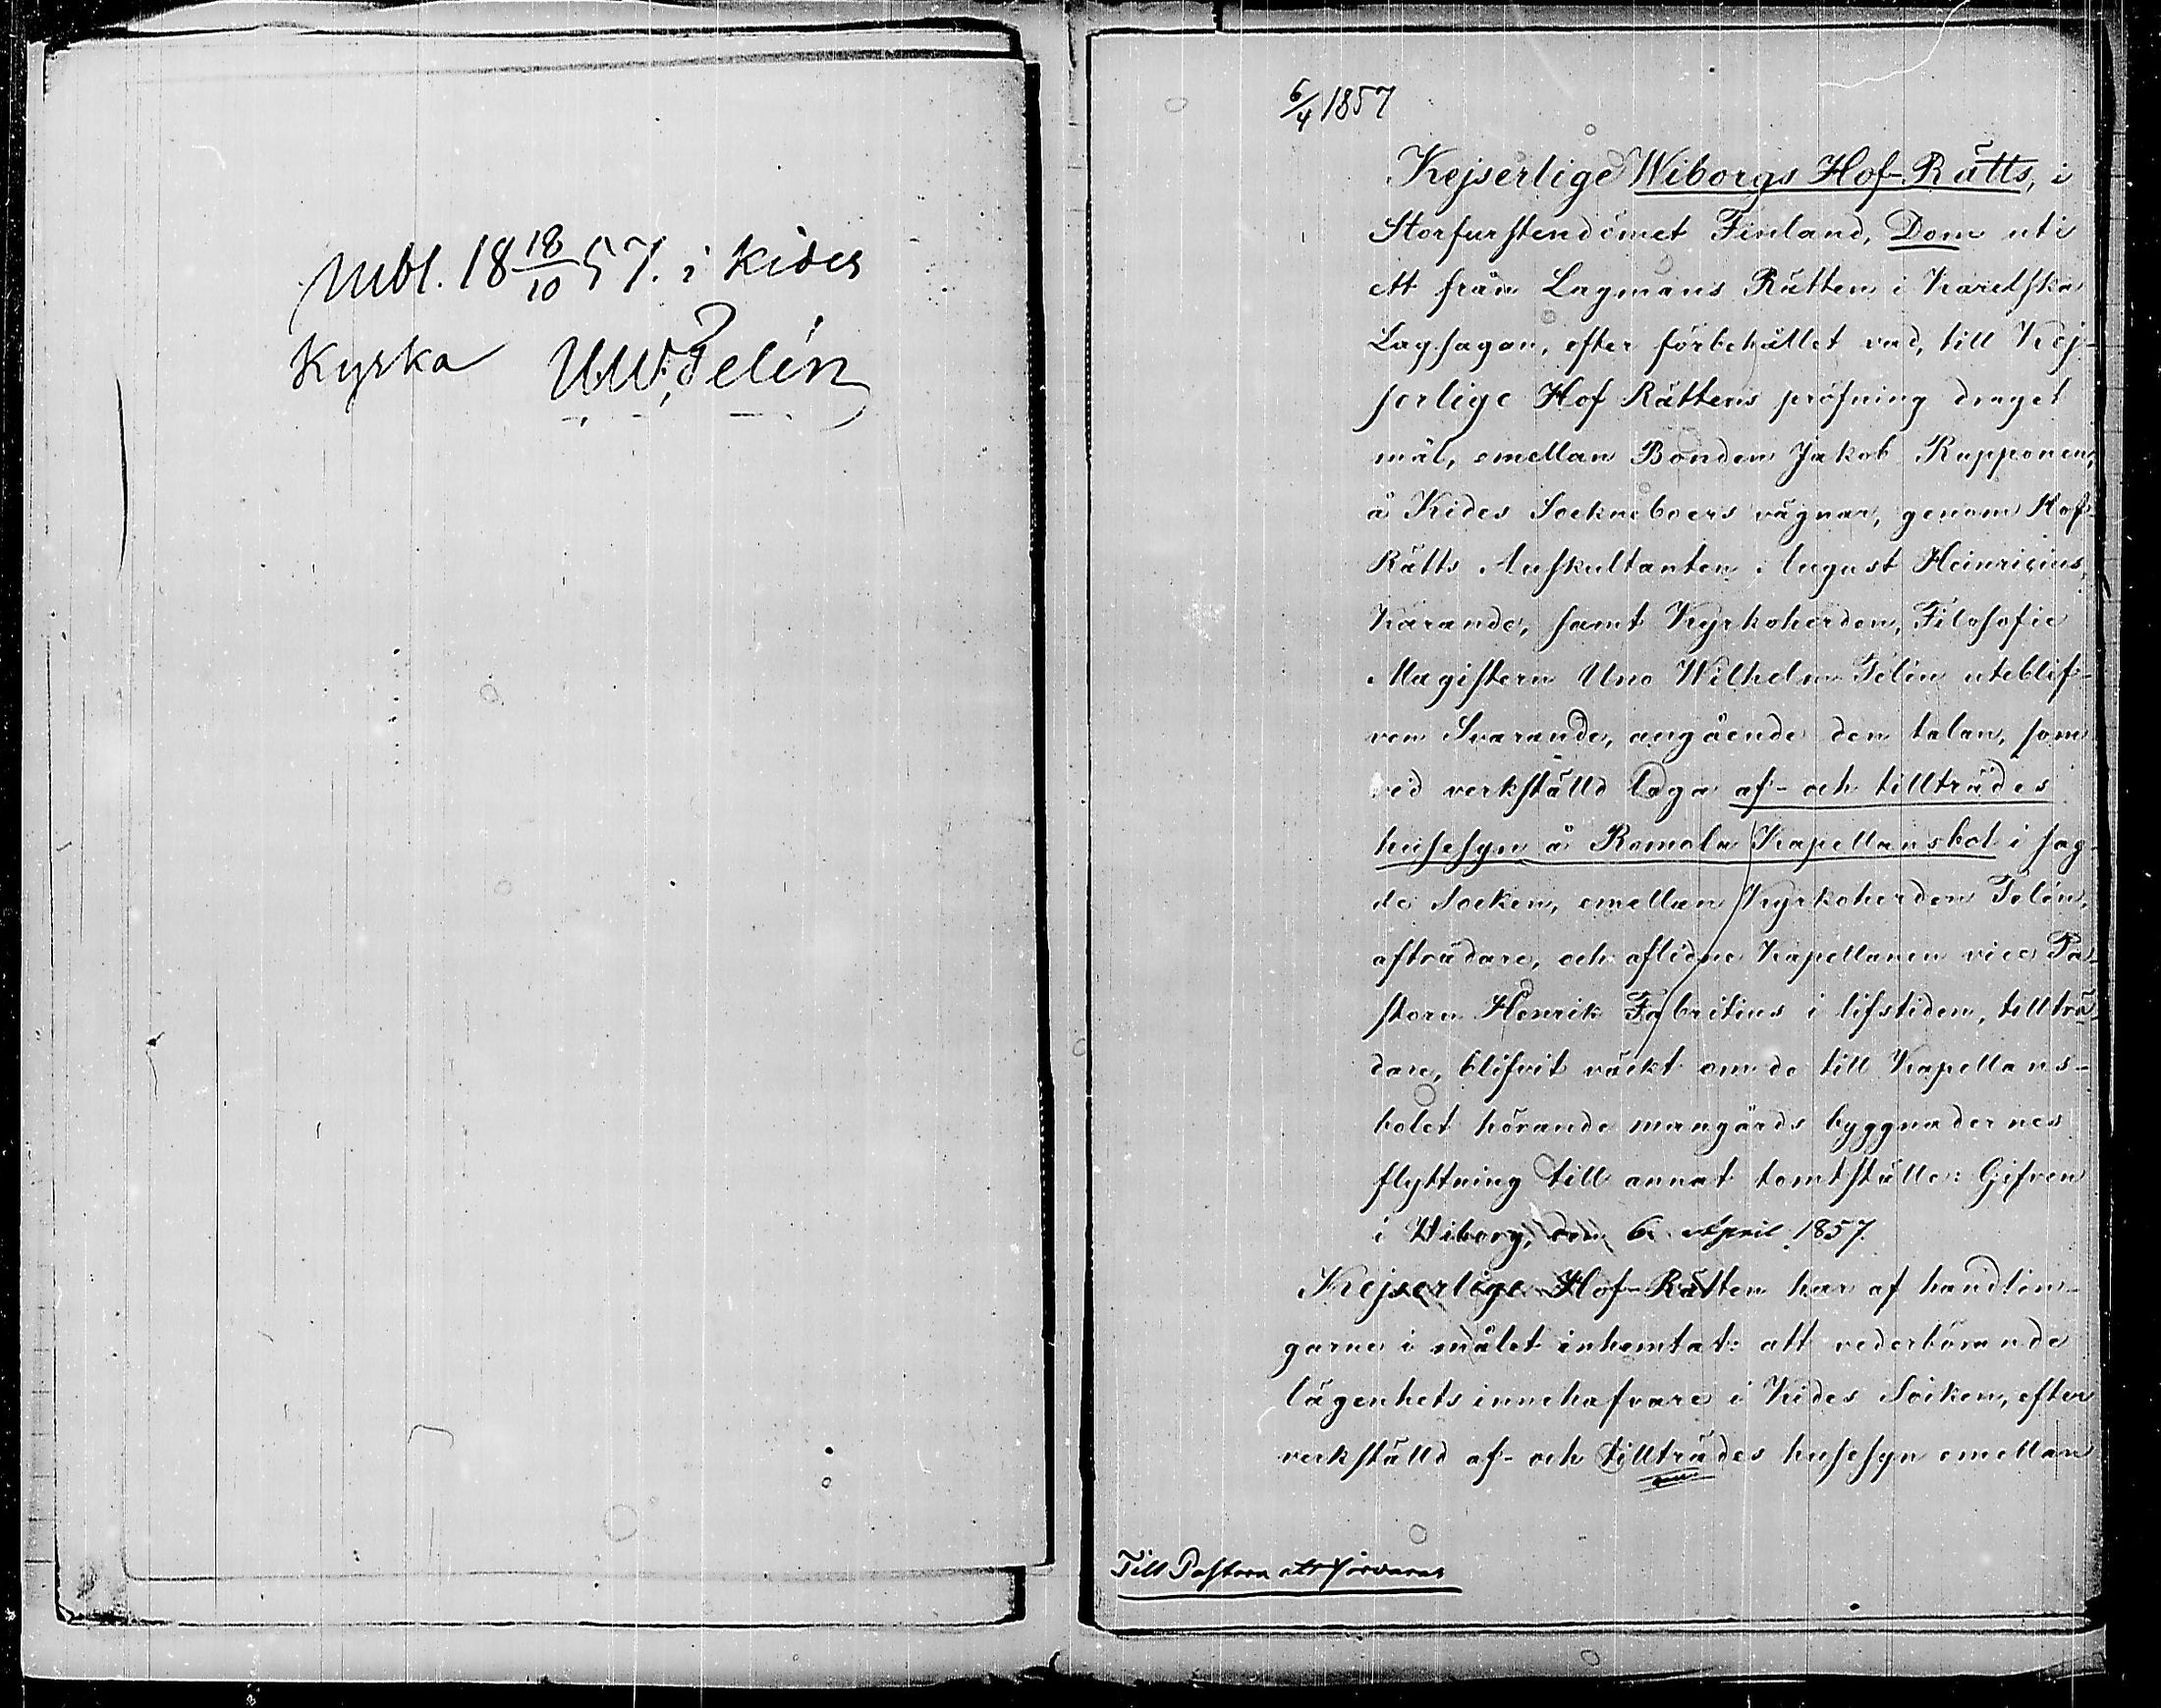 Uubl. 18 18/10 57. i Kides
Kyrka U.W. Telén
6/4 1857
Kejserlige Wiborgs Hof-Rätts, i
Storfurstendömet Finland, Dom uti
ett från Lagmans Rätten i Karelska
Lagsagan, efter förbehållet vad, till Kej-
serlige Hof Rättens pröfning draget
mål, emellan Bonden Jakob Rupponen,
å Kides Sockneboers vägnar, genom Hof-
Rätts Auskultanten August Heinricius,
Kärande, samt Kyrkoherden, Filosofie
Magistern Uno Wilhelm Telén uteblif-
ven Svarande, angående den talan, som
vid verkställd laga af- och tillträdes
husesyn å Romola Kapellansbol i sag-
de Socken, emellan Kyrkoherden Telén,
afträdare, och aflidne Kapellanen vice Pa-
storn Henrik Fabritius i lifstiden, tillträ-
dare, blifvit väckt om de till Kapellans-
bolet hörande mangårds byggnadernes
flyttning till annat tomtställe: Gifven
i Wiborg, den 6 April 1857.
Kejserlige Hof-Rätten har af handlin-
garne i målet inhemtat: att vederbörande
lägenhets innehafvare i Kides Socken, efter
verkställd af- och tillträdes husesyn emellan
Till Pastorn att förvaras